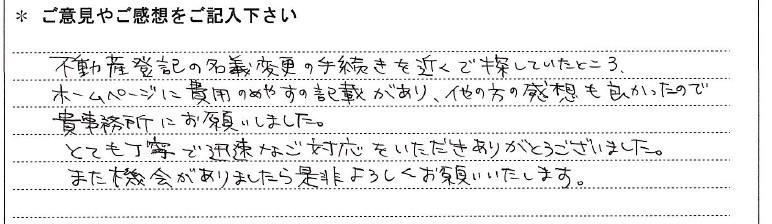 ＊ ご意見やご感想をご記入下さい
不動産登記の名義変更の手続きを近くで探していたところ、
ホームページに費用のめやすの記載があり、他の方の感想も良かったので
貴事務所にお願いしました。
とても丁寧で迅速なご対応をいただきありがとうございました。
また機会がありましたら是非よろしくお願いいたします。